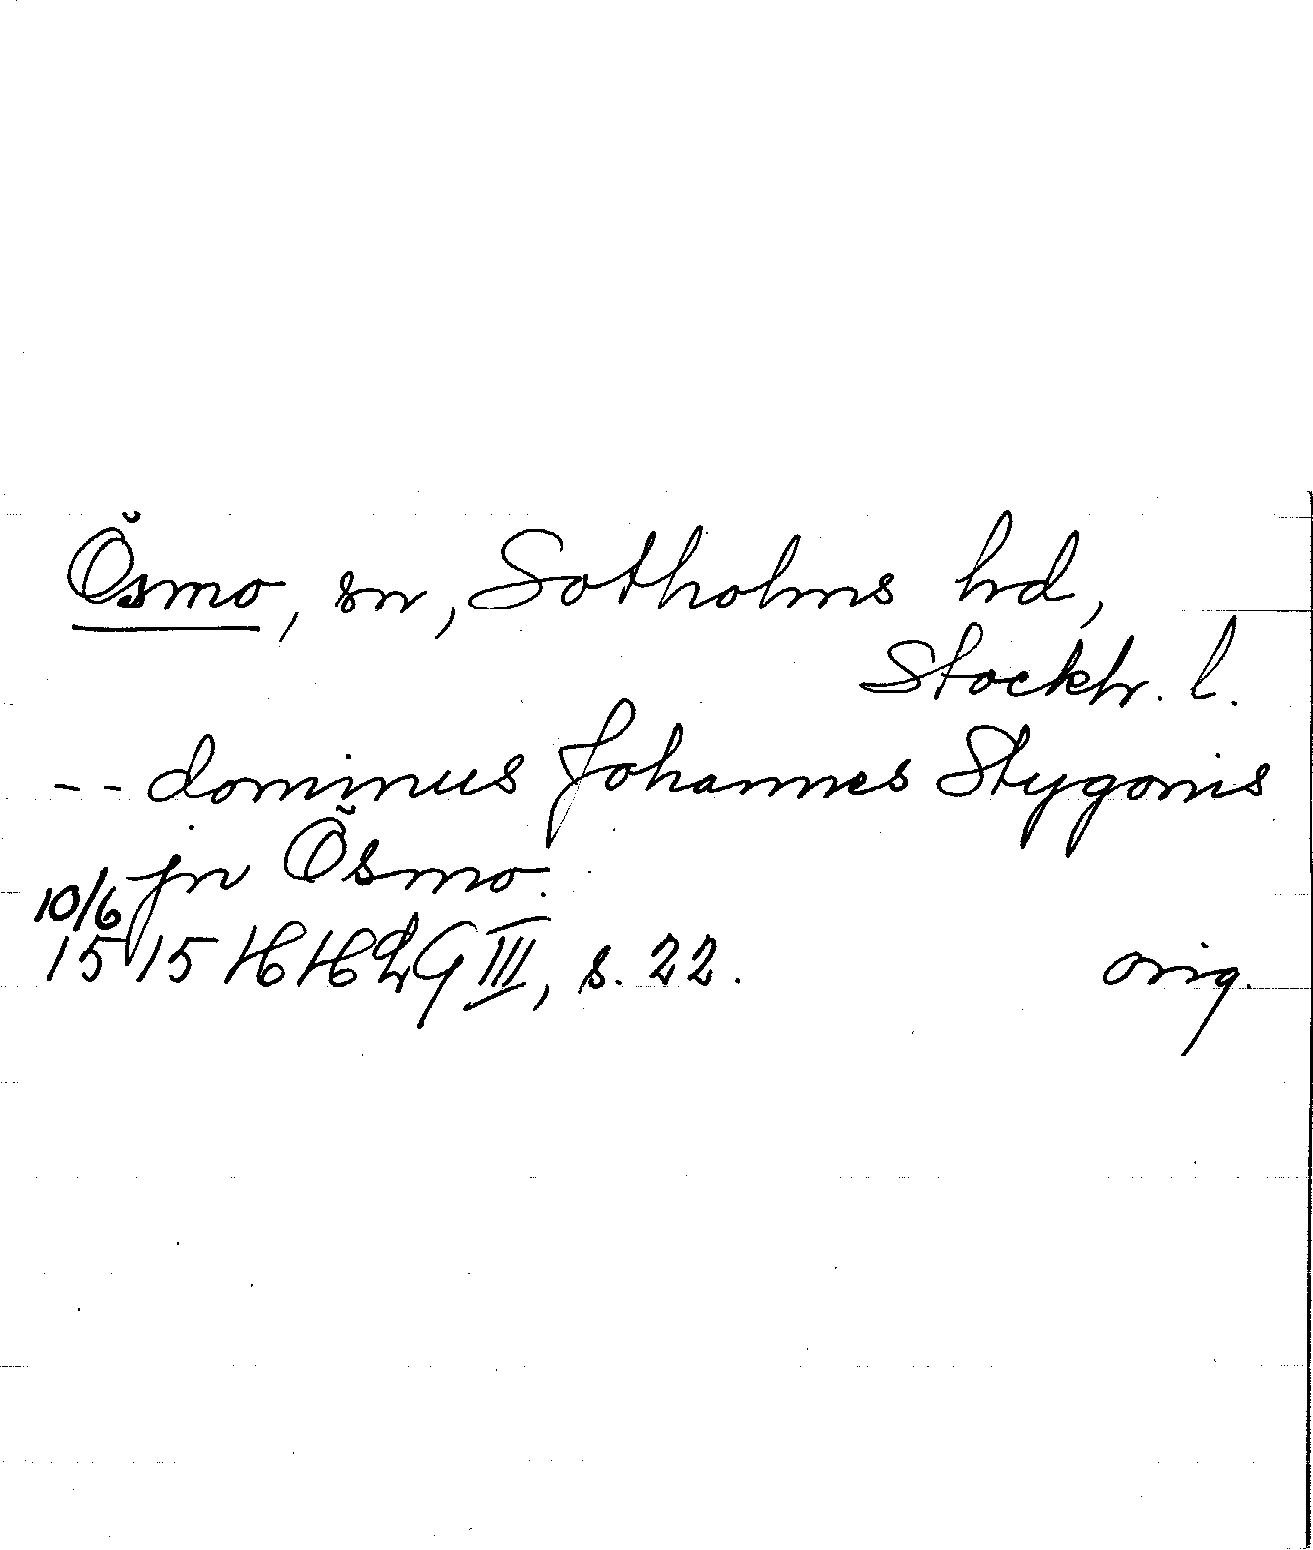 Ösmo, sn, Sotholms hd,
Stockh. l.
-- dominus Johannes Stygonis
jn Ösmo.
10/6
1515 HHLG III, s. 22. orig.